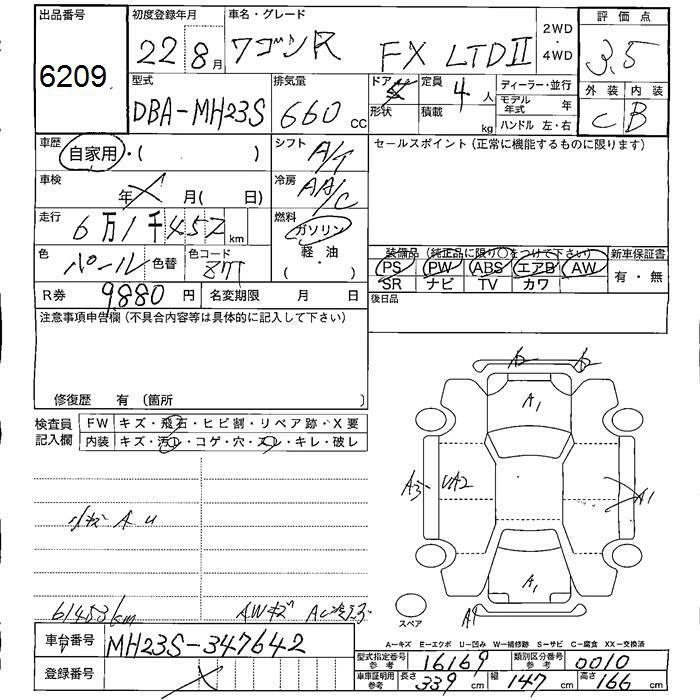 出品番号 6209
初度登録年月 22 8月
車名・グレード ワゴンR FX LTDⅡ
2WD ・ 4WD
評価点 3.5
外装 C 内装 B
型式 DBA-MH23S
排気量 660 CC
ドア 形状 5
定員 4人
積載 kg
ディーラー・並行
モデル年式 年
ハンドル 左・右
車歴 自家用・( )
シフト A/T
セールスポイント(正常に機能するものに限ります)
車検 年 月( 日)
冷房 AA/C
走行 6万1千452km
燃料 ガソリン 軽油 ( ・ )
色 パール 色替 色コード
装備品(純正品に限り○をつけて下さい) 新車保証書
PS PW ABS エアB AW 有・無
SR ナビ TV カワ
R券 9880円 名変期限 月 日
後日品
注意事項申告欄(不具合内容等は具体的に記入して下さい)
修復歴 有 (箇所 )
検査員記入欄
FW キズ・飛石・ヒビ割・リペア跡・X要
内装 キズ・汚レ・コゲ・穴・スレ・キレ・破レ
A2
A1
A3 UA2 A1
小キズ A U
A1
61453km AWキズ
A1
スペア
A-キズ E-エクボ U-凹み W-補修跡 S-サビ C-腐食 XX-交換済
車台番号 MH23S-347642
登録番号
型式指定番号参考 16169 類別区分番号参考 0010
車庫証明用参考 長さ 339cm 幅 147cm 高さ 166cm